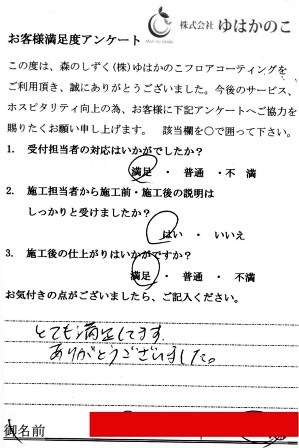 株式会社 ゆはかのこ
お客様満足度アンケート
この度は、森のしずく(株)ゆはかのこフロアコーティングを
ご利用頂き、誠にありがとうございました。今後のサービス、
ホスピタリティ向上の為、お客様に下記アンケートへご協力を
賜りたくお願い申し上げます。 該当欄を○で囲って下さい。
1. 受付担当者の対応はいかがでしたか?
満足 ・ 普通 ・ 不満
2. 施工担当者から施工前・施工後の説明は
しっかりと受けましたか?
はい ・ いいえ
3. 施工後の仕上がりはいかがですか?
満足 ・ 普通 ・ 不満
お気付きの点がございましたら、ご記入ください。
とても満足してます。
ありがとうございました。
御名前